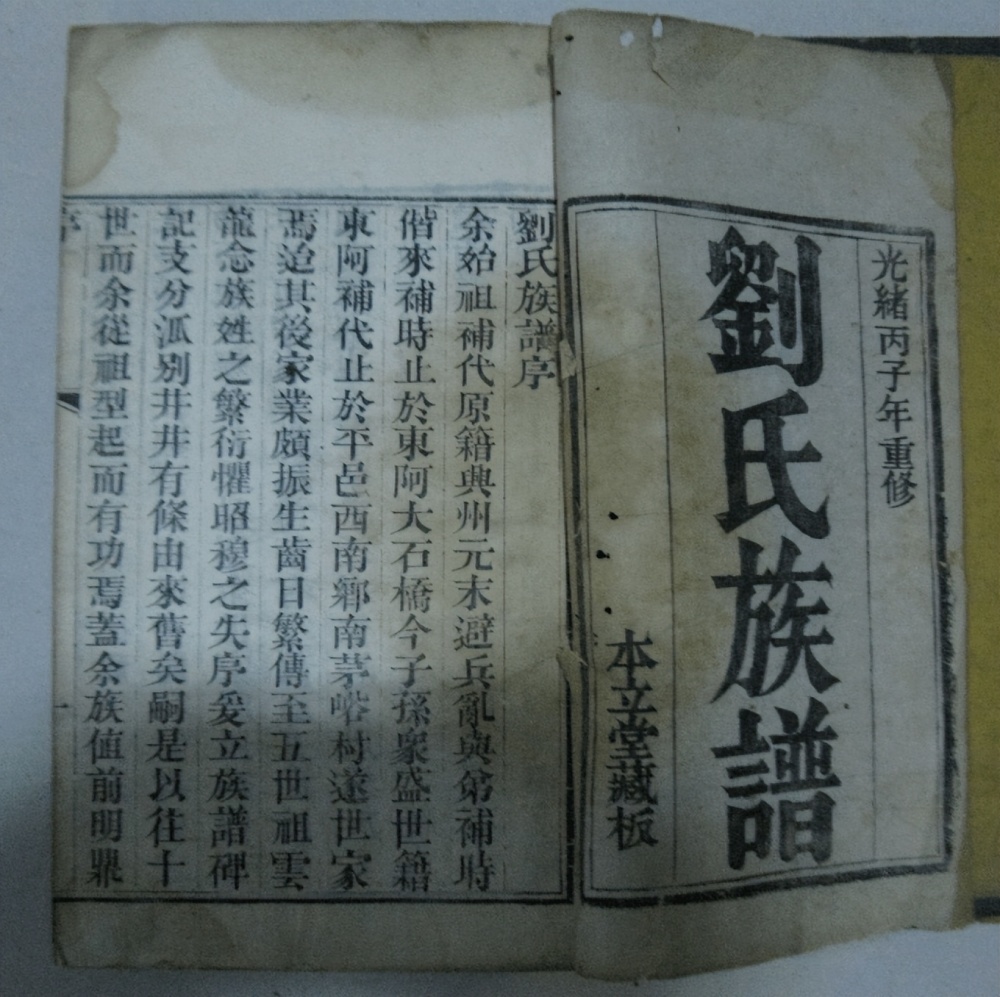 光緒丙子年重修
劉氏族譜
本立堂藏板
劉氏族譜序
余始祖補代原籍興州元末避兵亂與弟補時
偕來補時止於東阿大石橋今子孫衆盛世籍
東阿補代止於平邑西南鄉南茅峪村遂世家
焉迨其後家業頗振生齒日繁傳至五世祖雲
龍念族姓之繁衍懼昭穆之失序爰立族譜碑
記支分派別井井有條由來舊矣嗣是以往十
世而余從祖型起而有功焉蓋余族值前明鼎
序
一